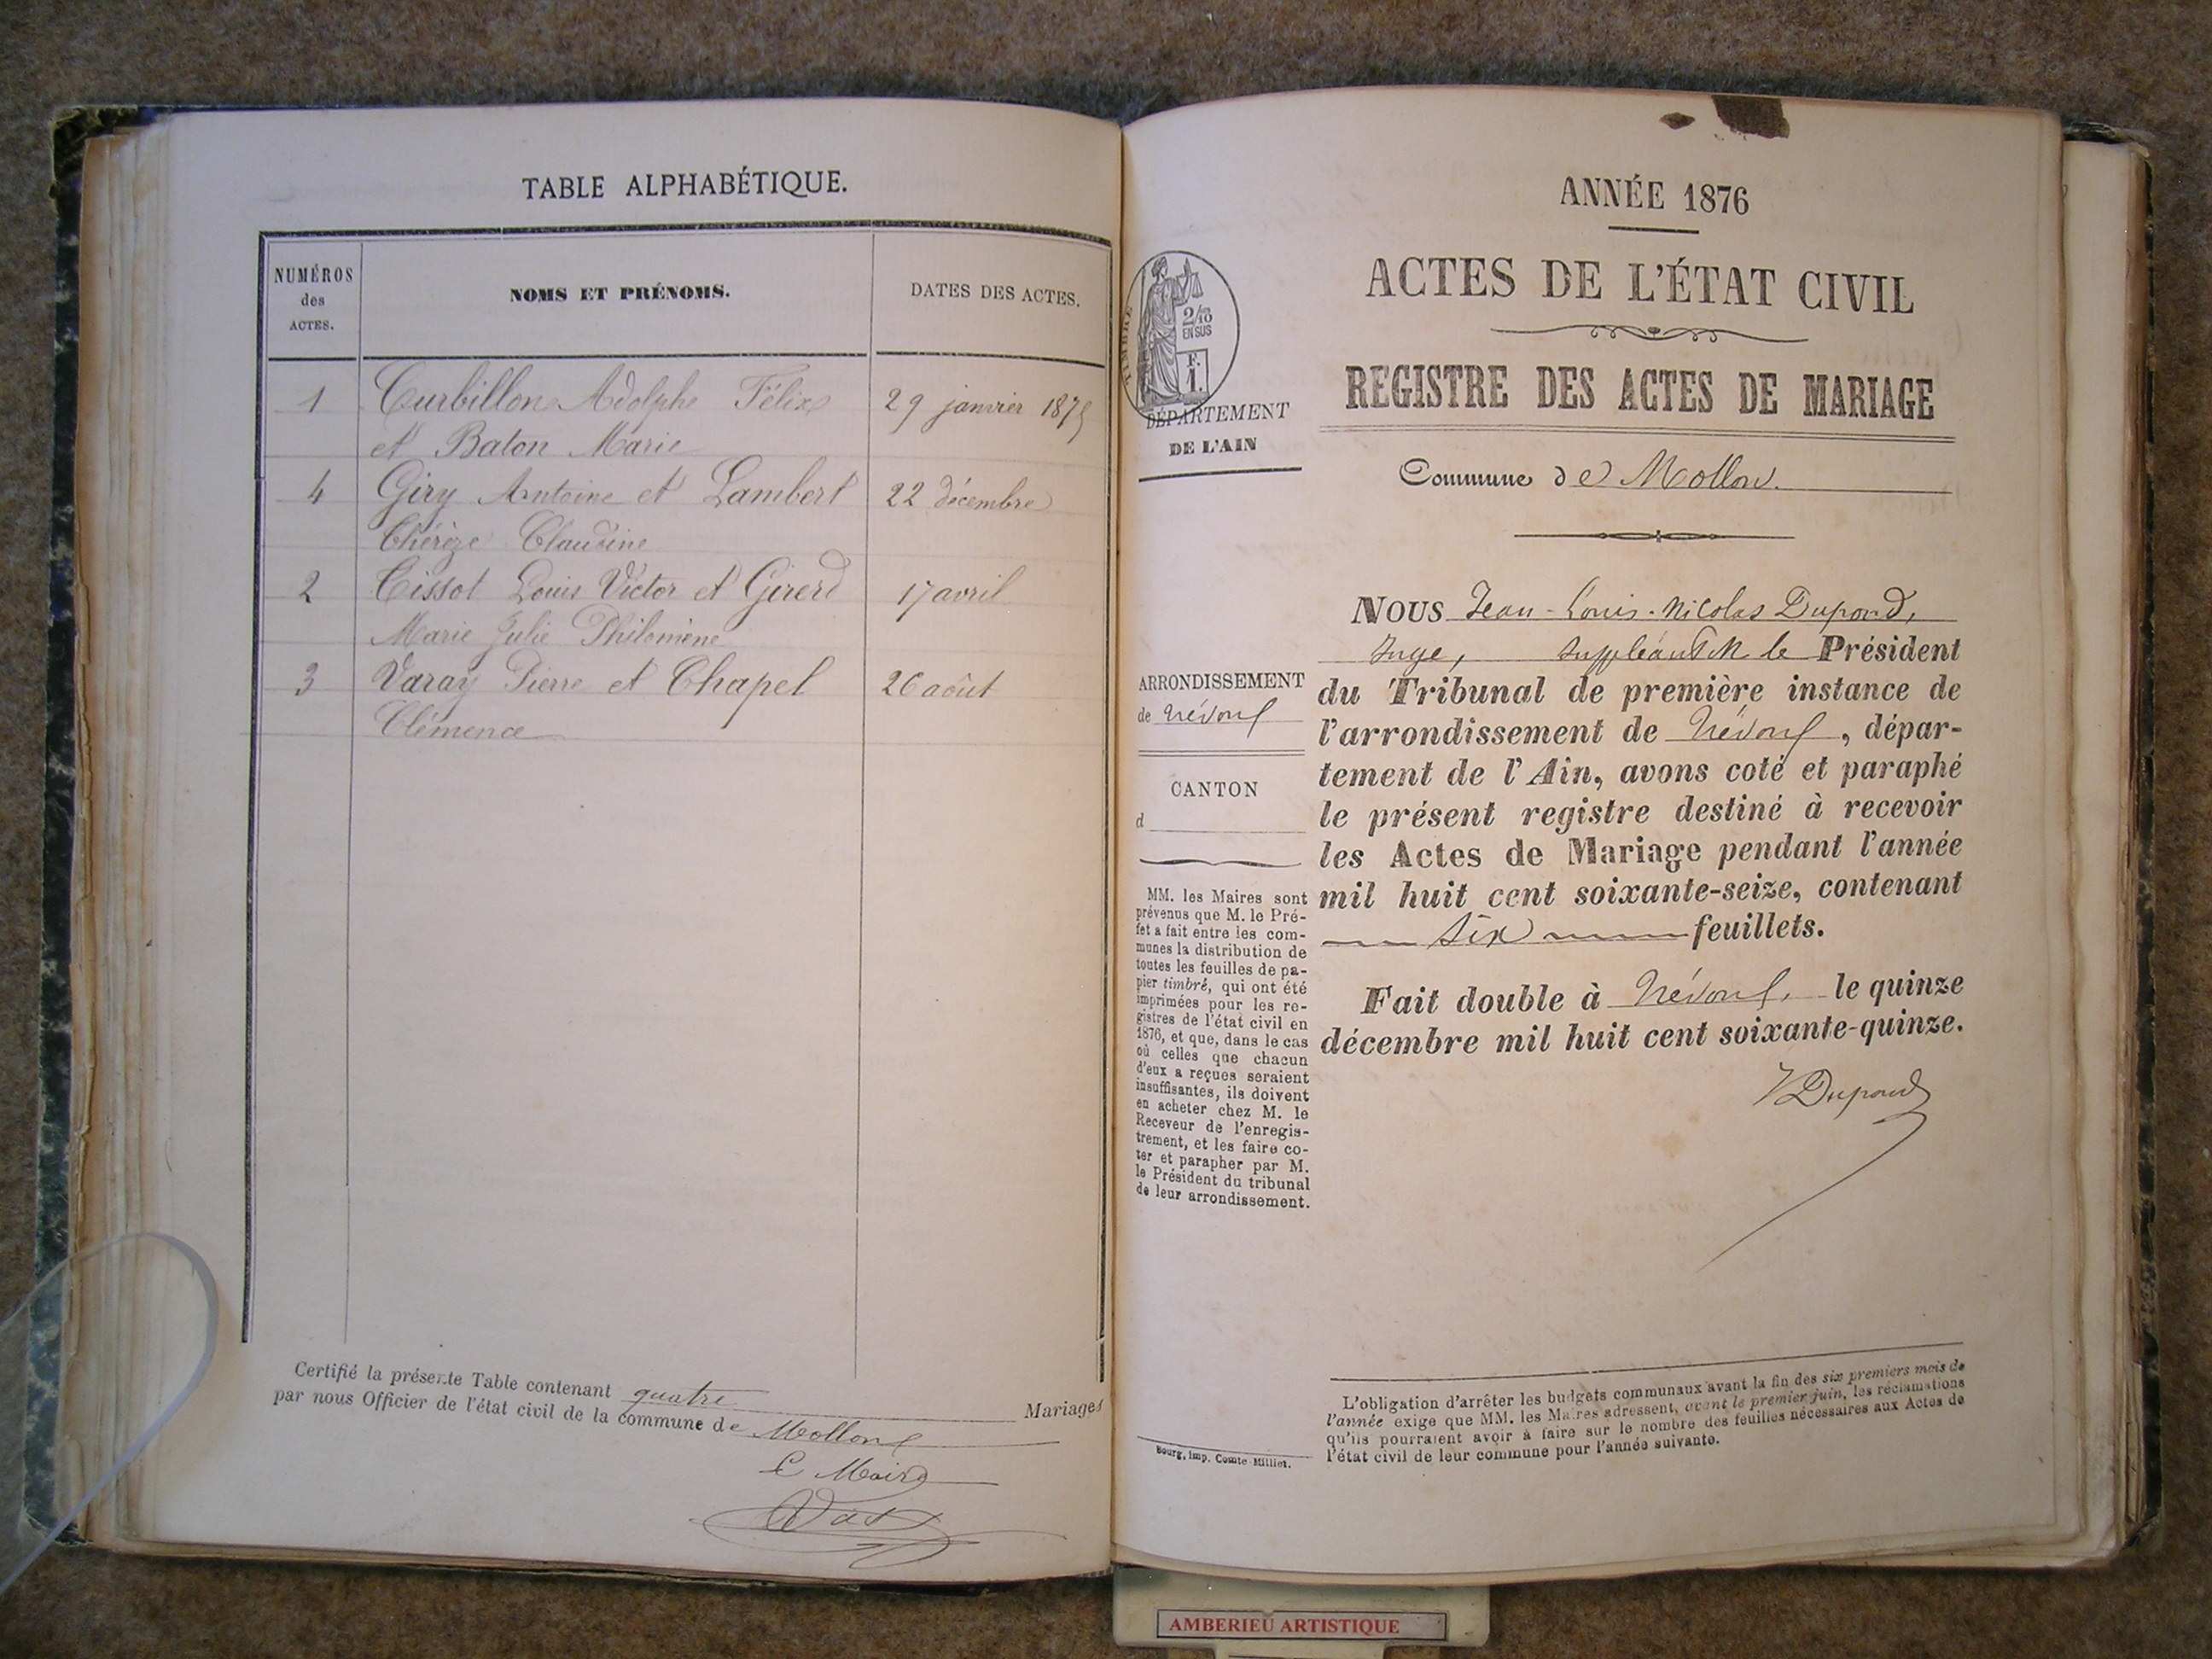 TABLE ALPHABÉTIQUE.
NUMÉROS
des
ACTES.
NOMS ET PRÉNOMS.
DATES DES ACTES.
1 Curbillon Adolphe Félix 29 janvier 1875
et Baton Marie
4 Giry Antoine et Lambert 22 décembre
Thérèze Claudine
2 Tissot Louis Victor et Girerd 17 avril
Marie Julie Philomène
3 Varay Pierre et Chapel 26 août
Clémence
Certifié la présente Table contenant quatre Mariages
par nous Officier de l'état civil de la commune de Mollon
Le Maire
ANNÉE 1876
ACTES DE L'ÉTAT CIVIL
REGISTRE DES ACTES DE MARIAGE
TIMBRE
2/10
EN SUS
F.
1.
DÉPARTEMENT
DE L'AIN
Commune de Mollon.
ARRONDISSEMENT
de Trévoux
CANTON
d
MM. les Maires sont
prévenus que M. le Pré-
fet a fait entre les com-
munes la distribution de
toutes les feuilles de pa-
pier timbré, qui ont été
imprimées pour les re-
gistres de l'état civil en
1876, et que, dans le cas
où celles que chacun
d'eux a reçues seraient
insuffisantes, ils doivent
en acheter chez M. le
Receveur de l'enregis-
trement, et les faire co-
ter et parapher par M.
le Président du tribunal
de leur arrondissement.
NOUS Jean-Louis-Nicolas Dupond,
Juge, suppléant M. le Président
du Tribunal de première instance de
l'arrondissement de Trévoux, dépar-
tement de l'Ain, avons coté et paraphé
le présent registre destiné à recevoir
les Actes de Mariage pendant l'année
mil huit cent soixante-seize, contenant
six feuillets.
Fait double à Trévoux, le quinze
décembre mil huit cent soixante-quinze.
Dupond
L'obligation d'arrêter les budgets communaux avant la fin des six premiers mois de
l'année exige que MM. les Maires adressent, avant le premier juin, les réclamations
qu'ils pourraient avoir à faire sur le nombre des feuilles nécessaires aux Actes de
l'état civil de leur commune pour l'année suivante.
Bourg, imp. Comte-Milliet.
AMBERIEU ARTISTIQUE